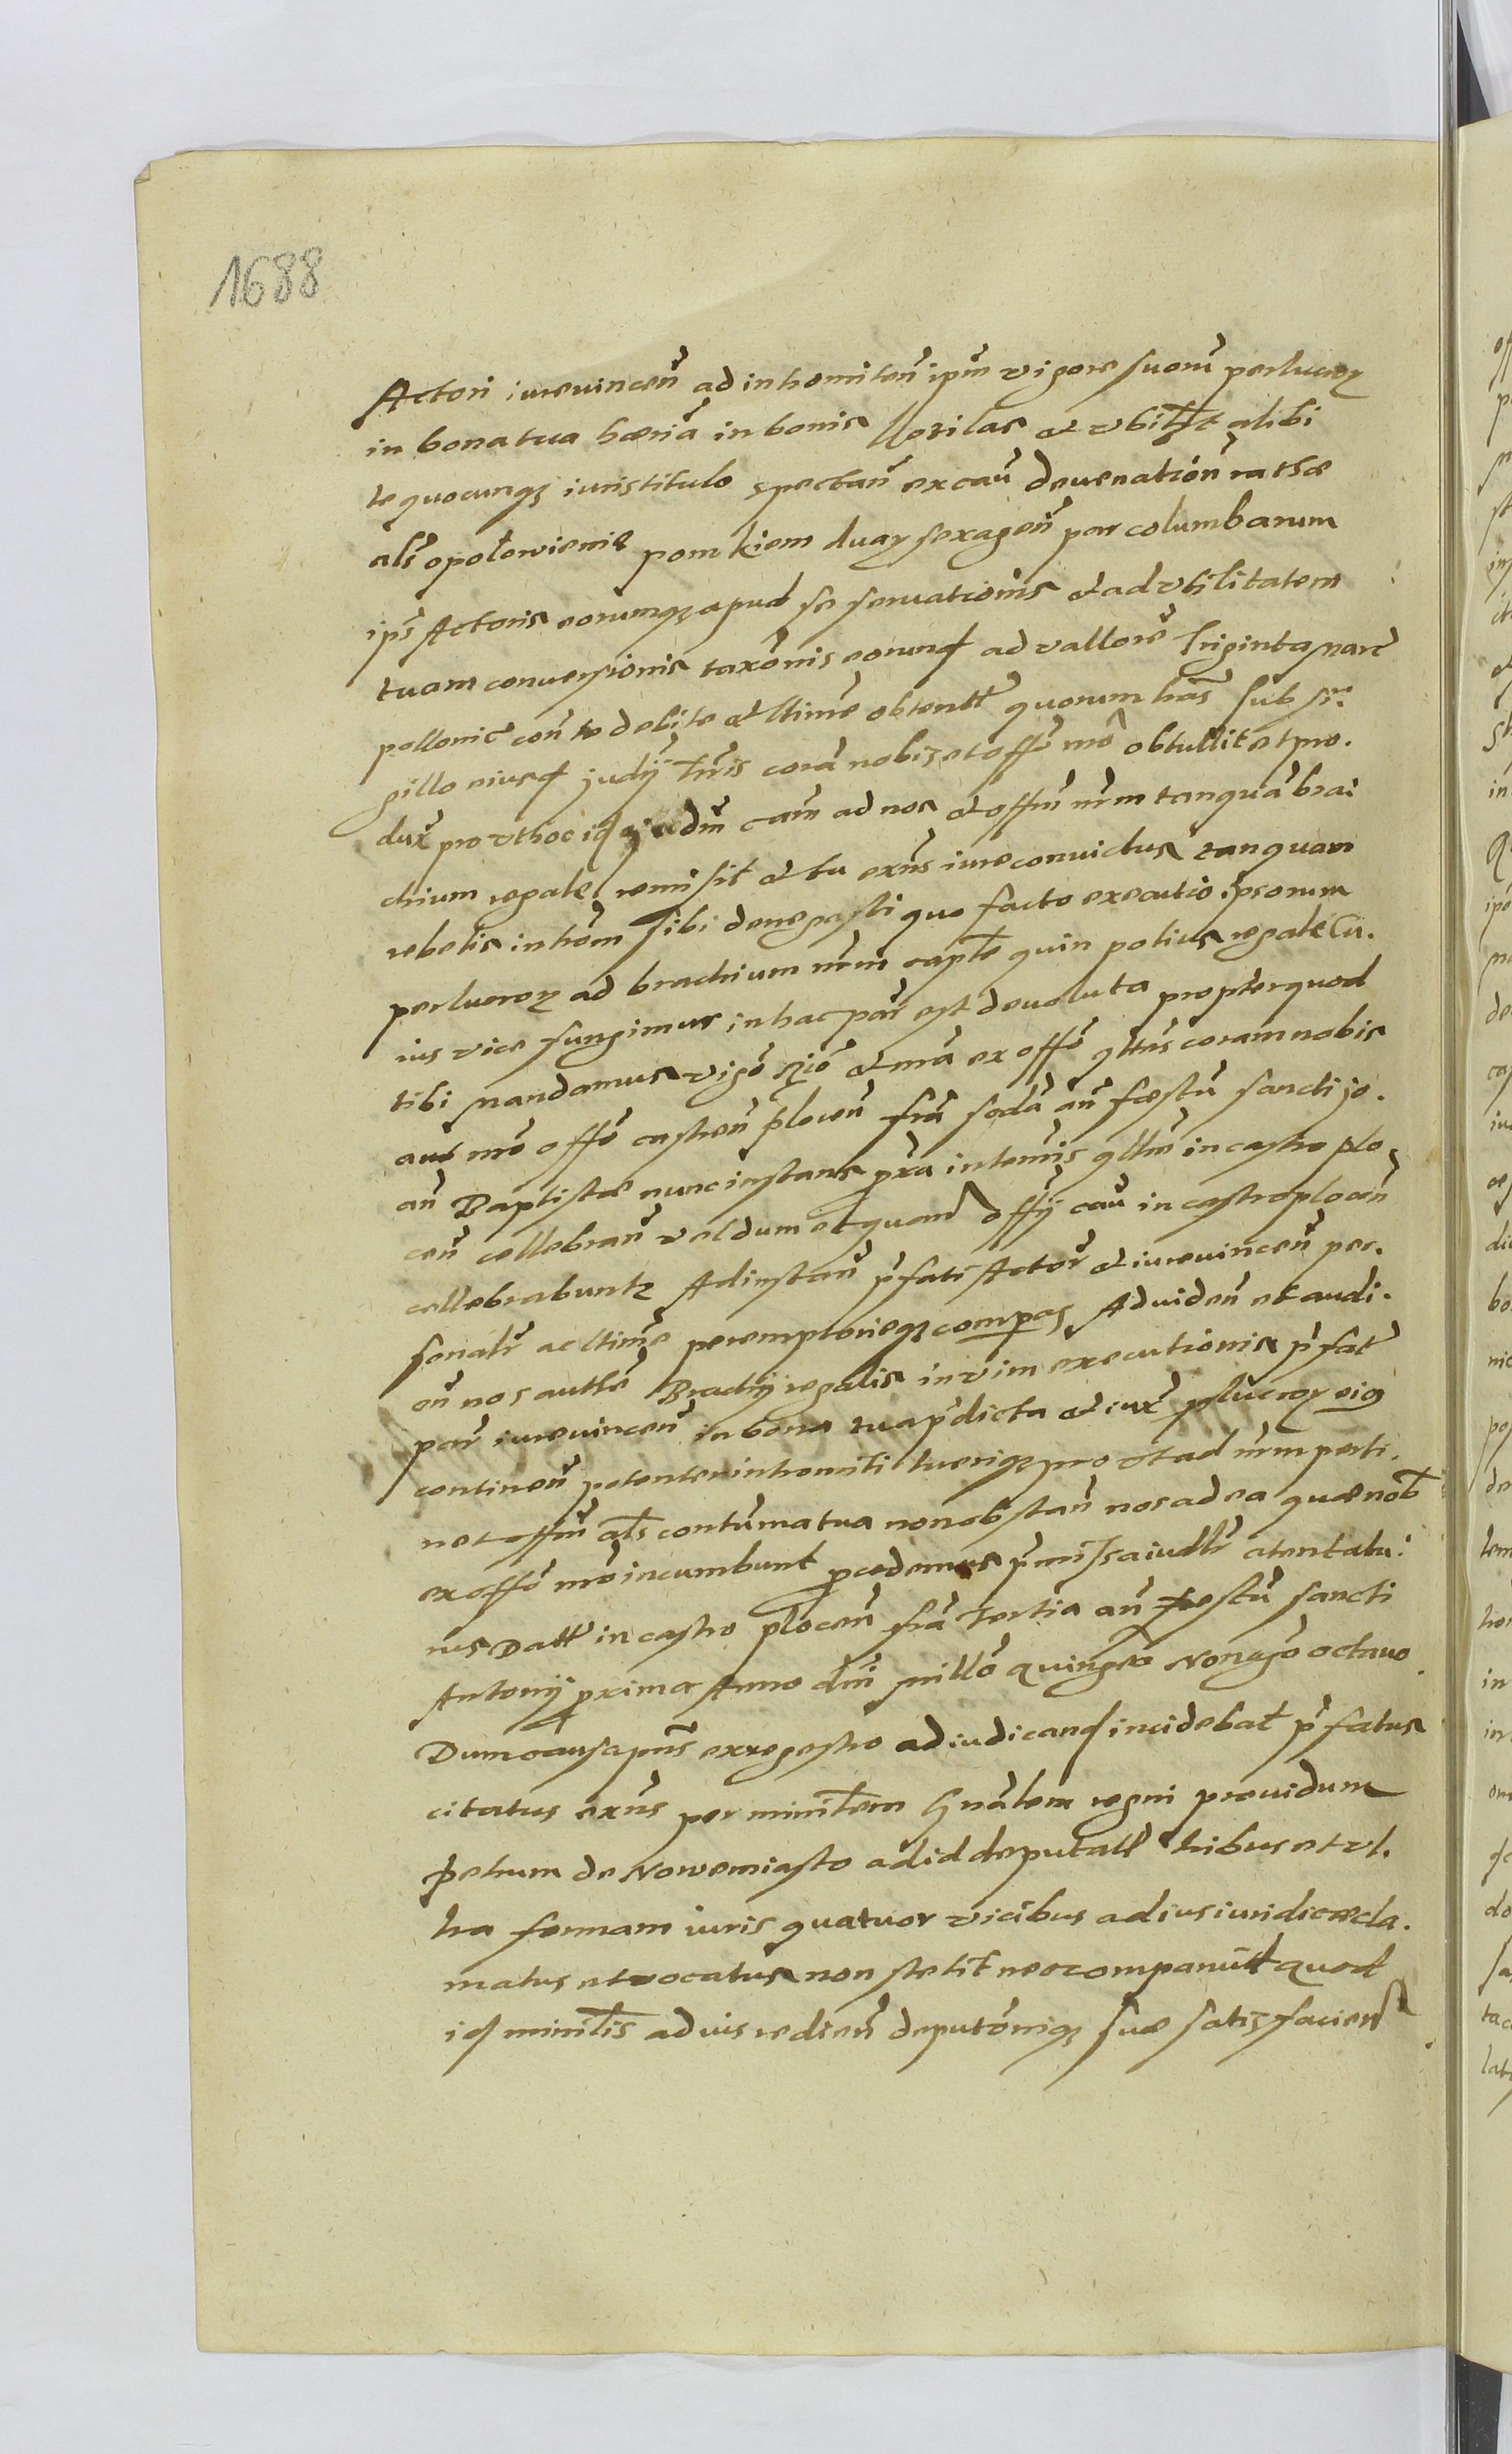 1688
Actori iurevinceñ ad intromiteñ ipm̃ vigore suorũ perlucroꝝ
in bona tua hæriã in bonis et vbilt alibi
te quocunqȝ iuristitulo spectañ ex caũ devenation̄
als̃ opołowienie duaꝝ sexageñ par columbarum
ips̃ Actoris eorumqȝ apud se servationis et ad vtilitatem
tuam conversionis taxõnis eorund ad vallorẽ Triginta marc̃
pollonic̃ coñ te debite et lltimẽ obtentt̃ quorum hãs sub si-
gillo eiusd judÿ lrñis corã nobis et offõ nrõ obtullit et pro-
dux̃ prout hoc id dm̃ cam̃ ad nos et offm̃ nrm̃ tanquã bra-
chium regale remisit et tu exñs iure convictus tanquam
rebelis introm̃ sibi denegasti quo facto executio ipsorum
perlucroꝝ ad brachium nrm̃ captẽ quin potius regale Cu-
ius vice fungimur in hac par̃ est devoluta propter quod
tibi mandamus vigõ et nrã ex offõ qttũs coram nobis
aut nrõ offõ castreñ ploceñ friã sedã añ fæstũ sancti jo-
añ Baptistæ nunc instans in termĩs qltm̃ in castro plo-
ceñ cellebrañ vel dum et quañ offÿ cãu in castro ploceñ
cellebrabuntꝝ Ad instañ p̃fati Actor̃ et iurevinceñ per-
sonalr̃ ac ltimẽ peremptorieqȝ compas Ad videñ et audi-
eñ nos authẽ Brachÿ regalis in vim executionis p̃fat̃
par̃ iurevinceñ in bona tua p̃dicta et iux̃ plucroꝝ eiȝ
contineñ potenter intromitti tueriqȝ pro vt ad nrm̃ perti-
net offm̃ als̃ contũma tua non obstañ nos ad ea quæ nob̃
ex offõ nrõ incumbunt procedemus p̃missa iudlr̃ atentatu-
rus Datt̃ in castro ploceñ friã tertia añ fæstũ sancti
Antonÿ proxima Anno dñi millõ quingtõ Nonagõ octavo
Dum causa pñs ex regestro ad iudicand incidebat p̃fatus
citatus exñs per minilem Gñalem regni providum
petrum de Nowemiasto ad id deputatt̃ tribus et vl-
tra formam iuris quatuor vicibus ad ius iuridicæ cla-
matus et vocatus non stetit nec comparuit quod
id minilis ad ius redieñ deputõniqȝ suæ satisfaciens